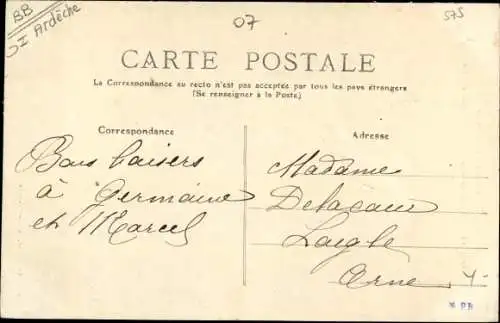 BB
SI Ardèche
07
575
CARTE POSTALE
La Correspondance au recto n'est pas acceptée par tous les pays étrangers
(Se renseigner à la Poste)
Correspondance
Bons baisers
à Germaine
et Marcel
Adresse
Madame
Delacour
Laigle
Orne
4-
* PR